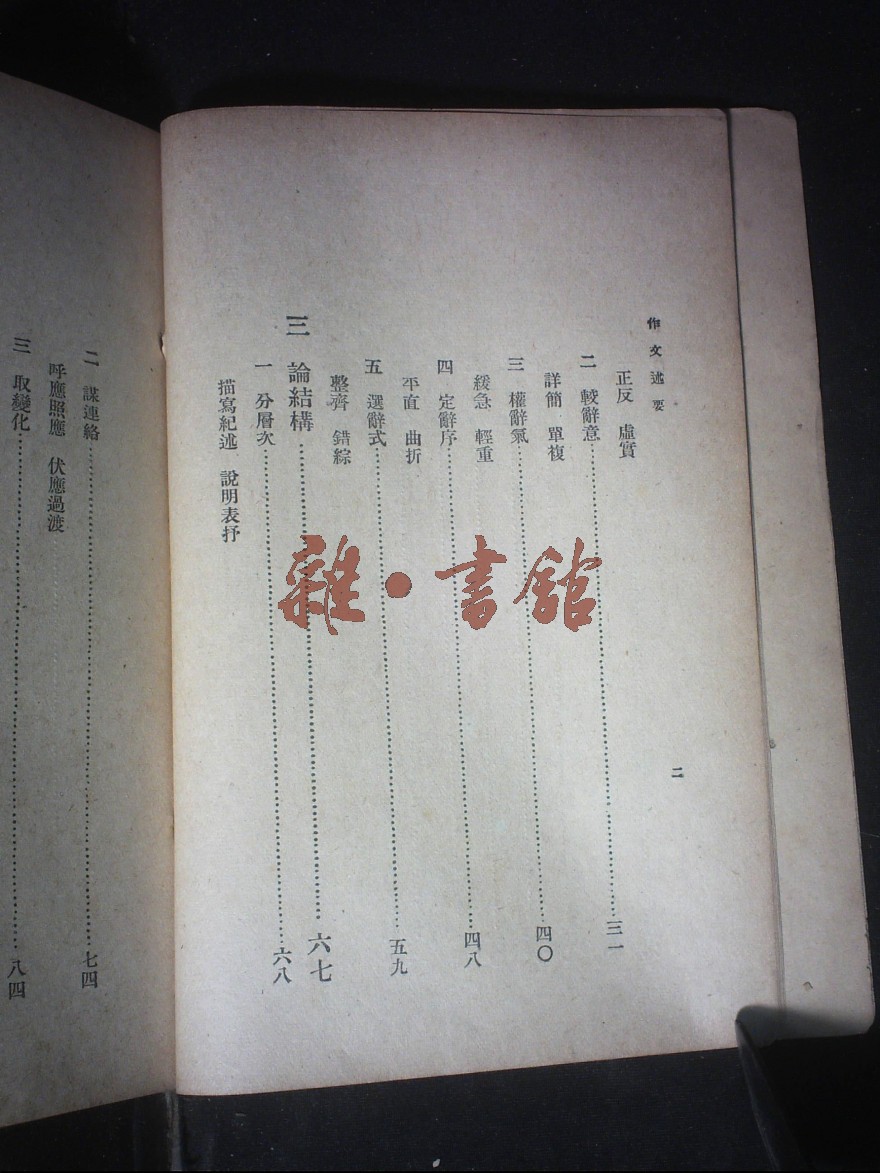 作文述要
二
正反　虛實
二　較辭意……三一
詳簡　單複
三　權辭氣……四〇
緩急　輕重
四　定辭序……四八
平直　曲折
五　選辭式……五九
整齊　錯綜
三　論結構……六七
一　分層次……六八
描寫紀述　說明表抒
二　謀連絡……七四
呼應照應　伏應過渡
三　取變化……八四
雜·書舘